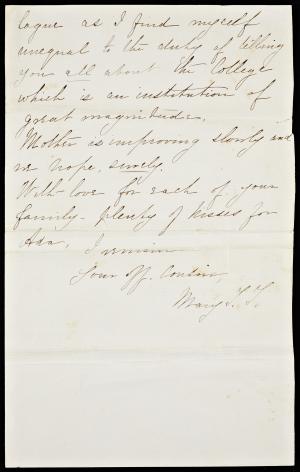 logue as I find myself
unequal to the duty of telling
you all about the College
which is an institution of
great magnitude.
Mother is improving slowly and
we hope, surely.
With love for each of your
family - plenty of kisses for
Ada,
I remain
Your aff. Cousin,
Mary T. T.